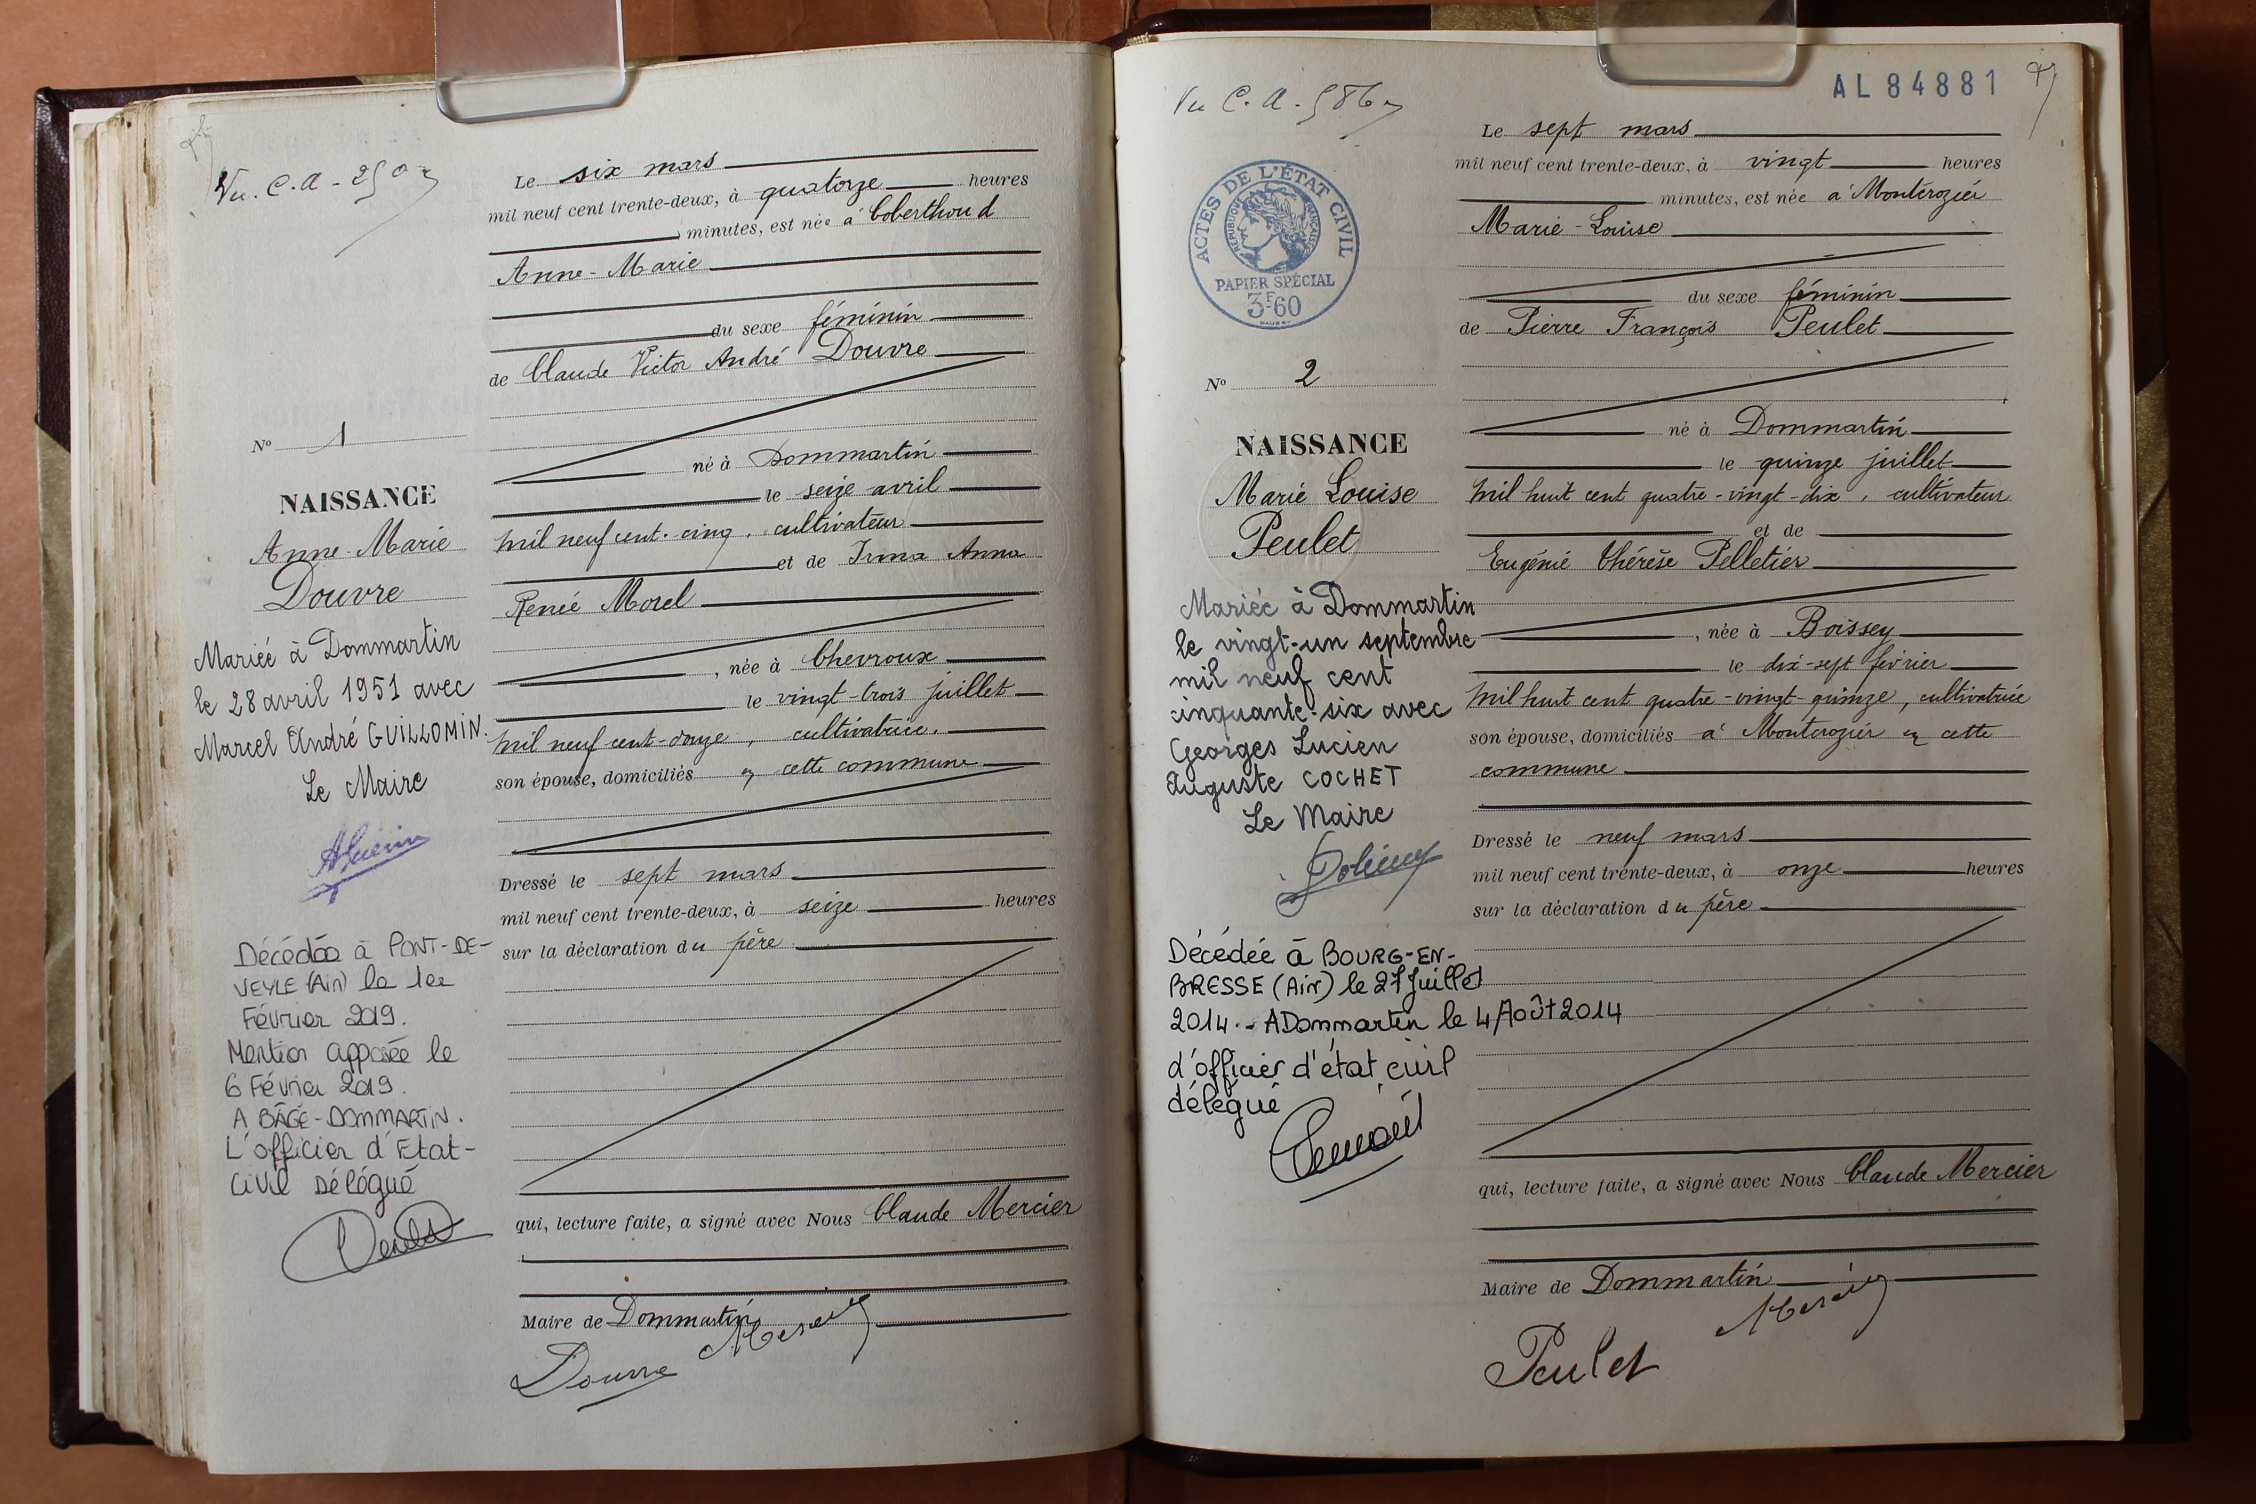 Vu. C. A -
Le six mars
mil neuf cent trente-deux, à quatorze heures
minutes, est née à Coberthoud
Anne-Marie
du sexe féminin
de Claude Victor André Douvre
né à Dommartin
le seize avril
mil neuf cent-cinq, cultivateur
et de Irma Anna
Renée Morel
, née à Chevroux
le vingt-trois juillet
mil neuf cent-onze, cultivatrice,
son épouse, domiciliés en cette commune
Dressé le sept mars
mil neuf cent trente-deux, à seize heures
sur la déclaration du père
qui, lecture faite, a signé avec Nous Claude Mercier
Maire de Dommartin
Douvre Mercier
N° 1
NAISSANCE
Anne-Marie
Douvre
Mariée à Dommartin
le 28 avril 1951 avec
Marcel André GUILLOMIN.
Le Maire
Décédée à PONT-DE-
VEYLE (Ain) le 1er
Février 2019.
Mention apposée le
6 Février 2019.
A BÂGÉ-DOMMARTIN.
L'officier d'Etat-
Civil Délégué
Vu C. A.
AL 84881
ACTES DE L'ÉTAT CIVIL
RÉPUBLIQUE FRANÇAISE
PAPIER SPÉCIAL
3F60
Le sept mars
mil neuf cent trente-deux, à vingt heures
minutes, est née à Montérozier
Marie-Louise
du sexe féminin
de Pierre François Peulet
né à Dommartin
le quinze juillet
mil huit cent quatre-vingt-dix, cultivateur
et de
Eugénie Thérèse Pelletier
, née à Boissey
le dix-sept février
mil huit cent quatre-vingt-quinze, cultivatrice
son épouse, domiciliés à Monterozier en cette
commune
Dressé le neuf mars
mil neuf cent trente-deux, à onze heures
sur la déclaration du père
qui, lecture faite, a signé avec Nous Claude Mercier
Maire de Dommartin
Mercier
Peulet
N° 2
NAISSANCE
Marie Louise
Peulet
Mariée à Dommartin
le vingt-un septembre
mil neuf cent
cinquante-six avec
Georges Lucien
Auguste COCHET
Le Maire
Décédée à BOURG-EN-
BRESSE (Ain) le 27 Juillet
2014.- A Dommartin le 4 Août 2014
L'officier d'état civil
délégué